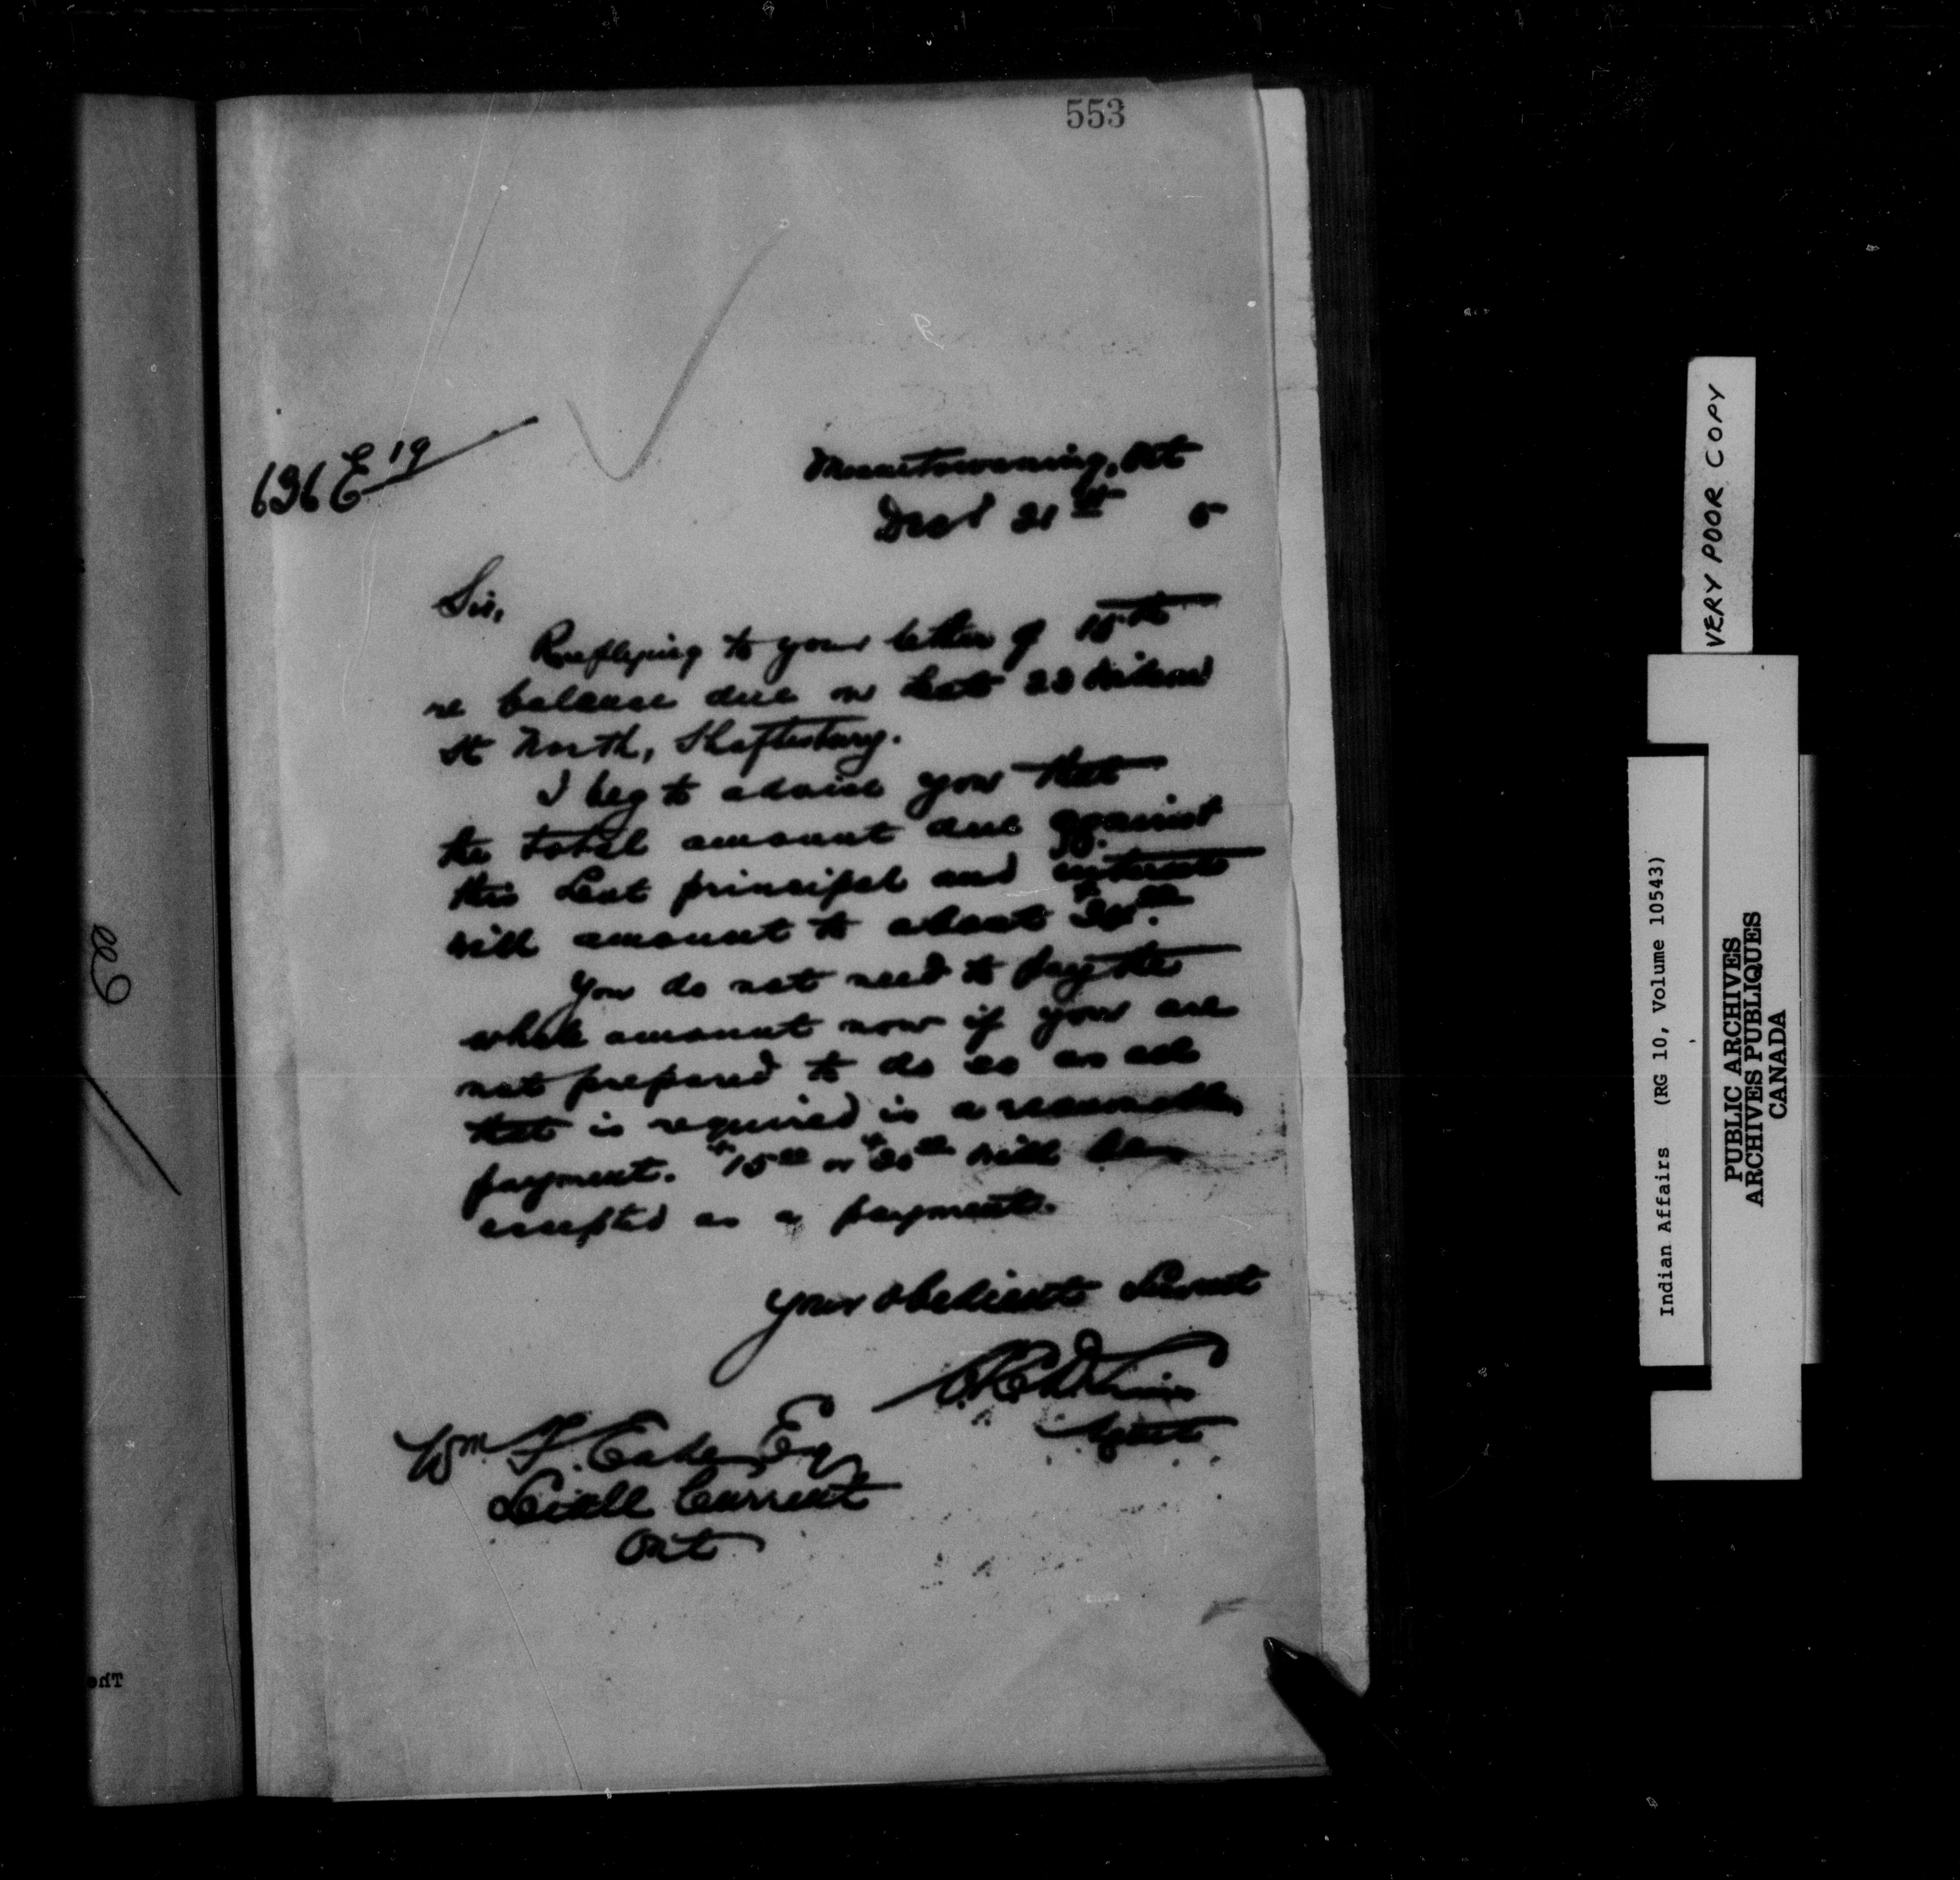 553
696 E 19
Manitowaning, Ont
Dec 21st 5
Sir,
Replying to your letter of 15th
re balance due on Lot 22
St North, Shaftesbury.
I beg to advise you that
the total amount due against
this Lot principal and interest
will amount to about
You do not need to pay the
whole amount now if you are
not prepared to do so as all
that is required is a reasonable
payment. $15 00 or $20 00 will be
accepted as a payment.
Your obedient Servant
Agent
Wm F. Esq
Little Current
Ont
VERY POOR COPY
Indian Affairs (RG 10, Volume 10543)
PUBLIC ARCHIVES
ARCHIVES PUBLIQUES
CANADA